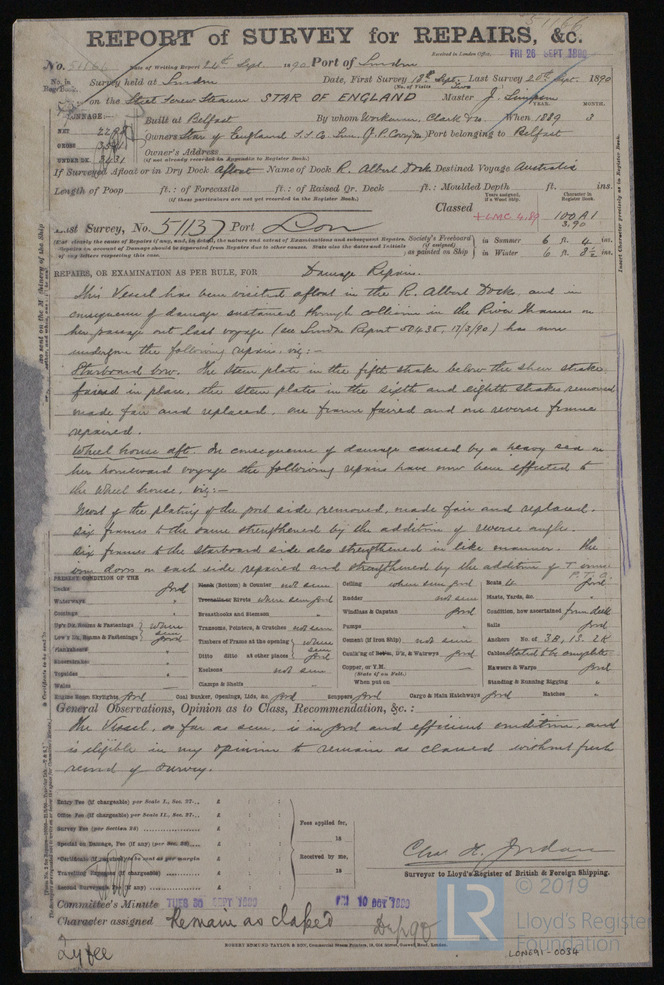 51166
REPORT of SURVEY for REPAIRS, &c.
Received in London Office, FRI 26 SEPT 1890
No. 51166 Date of Writing Report 24th Sept. 1890 Port of London
No. in Reg. Book. Survey held at London Date, First Survey 18th Sept. Last Survey 20th Sept. 1890
(No. of Visits Two)
on the Steel Screw Steamer STAR OF ENGLAND Master J. Simpson
TONNAGE:— Built at Belfast By whom Workman, Clark & Co. When 1889 YEAR. MONTH. 3
NET
GROSS Owners Star of England S.S Co. Lim. (J.P. Corry & Co) Port belonging to Belfast
UNDER DK. 3431 Owner's Address
(if not already recorded in Appendix to Register Book.)
If Surveyed Afloat or in Dry Dock Afloat Name of Dock R. Albert Dock Destined Voyage Australia
Length of Poop ft.: of Forecastle ft.: of Raised Qr. Deck ft.: Moulded Depth ft. ins.
(If these particulars are not yet recorded in the Register Book.)
Classed +LMC 4.89 100 A1 3.90
Last Survey, No. 51137 Port Lon
Society's Freeboard (if assigned) as painted on Ship in Summer 6 ft. 4 ins.
in Winter 6 ft. 8½ ins.
REPAIRS, OR EXAMINATION AS PER RULE, FOR Damage Repairs.
This Vessel has been visited afloat in the R. Albert Dock, and in
consequence of damage sustained through collision in the River Thames on
her passage out last voyage (see London Report 50435, 17/3/90) has now
undergone the following repairs, viz:-
Starboard bow. The stem plate in the fifth strake below the sheer strake
faired in place, the stem plates in the sixth and eighth strakes removed
made fair and replaced, one frame faired and one reverse frame
repaired.
Wheel house aft. In consequence of damage caused by a heavy sea on
her homeward voyage the following repairs have now been effected to
the wheel house, viz:-
Most of the plating of the port side removed, made fair and replaced.
six frames to the same strengthened by the addition of reverse angles.
six frames to the starboard side also strengthened in like manner. The
iron doors on each side repaired and strengthened by the addition of T irons
P.T.O.
PRESENT CONDITION OF THE
Decks good
Waterways "
Comings "
Up'r Dk. Beams & Fastenings where seen good
Low'r Dk. Beams & Fastenings
Planksheers
Topsides
Wales
(Bottom) & Counter not seen
Rivets where seen good
Breasthooks and Stemson
Transoms, Pointers, & Crutches not seen
Timbers of Frame at the opening where seen good
Ditto ditto at other places
Keelsons not seen
Clamps & Shelfs
Ceiling where seen good
Rudder not seen
Windlass & Capstan good
Pumps "
Cement (if Iron Ship) not seen
Caulk'g of Bottom, D'k, & Waterways good
Copper, or Y.M.
(State if on Felt.)
When put on
Boats 4 good
Masts, Yards, &c. "
Condition, how ascertained from deck
Sails good
Anchors No. of 3B, 1S. 2K
Cables stated to be complete
Hawsers & Warps good
Standing & Running Rigging "
Engine Room Skylights good Coal Bunker, Openings, Lids, &c. good Scuppers good Cargo & Main Hatchways good Hatches "
General Observations, Opinion as to Class, Recommendation, &c.:
The Vessel, as far as seen, is in good and efficient condition, and
is eligible in my opinion to remain as classed without fresh
record of survey.
Entry Fee (if chargeable) per Scale I., Sec. 27... £ : :
Office Fee (if chargeable) per Scale II., Sec. 27... £ : :
Survey Fee (per Section 28) £ : :
Special or Damage Fee (if any) (per Sec. 28) £ : :
Certificate (if required) to be sent as per margin
Travelling Expenses (if chargeable) £ : :
Second Surveyor's Fee (if any) £ : :
Fees applied for,
18
Received by me,
18
Chas H. Jordan
Surveyor to Lloyd's Register of British & Foreign Shipping.
Committee's Minute TUES 30 SEPT 1890 FRI 10 OCT 1890
Character assigned Remain as classed
ROBERT EDMUND TAYLOR & SON, Commercial Steam Printers, 19, Old Street, Goswell Road, London.
LR
© 2019
Lloyd's Register
Foundation
LONE91-0034